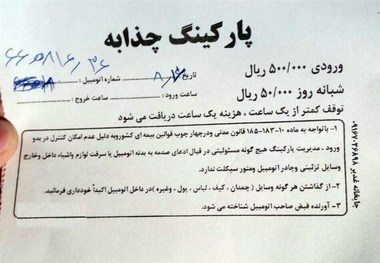 پارکینگ چذابه
ورودی ۵۰۰/۰۰۰ ریال
شبانه روز ۵۰/۰۰۰ ریال
تاریخ ۸/۶ شماره اتومبیل :
ساعت ورود : ساعت خروج :
توقف کمتر از یک ساعت ، هزینه یک ساعت دریافت می شود
۱- باتوجه به ماده ۱۰-۱۸۳-۱۸۵ قانون مدنی ودرچهار چوب قوانین بیمه ای کشوروبه دلیل عدم امکان کنترل در بدو
ورود ، مدیریت پارکینگ هیچ گونه مسئولیتی در قبال ادعای صدمه به بدنه اتومبیل یا سرقت لوازم واشیاء داخل وخارج
وسایل تزئینی وجادر اتومبیل وموتور سیکلت ندارد.
۲- از گذاشتن هر گونه وسایل (چمدان ، کیف ، لباس ، پول ، وغیره) در داخل اتومبیل اکیداً خودداری فرمائید.
۳- آورنده قبض صاحب اتومبیل شناخته می شود.
چاپخانه غدیر ۰۹۱۶۷۰۳۶۸۹۸